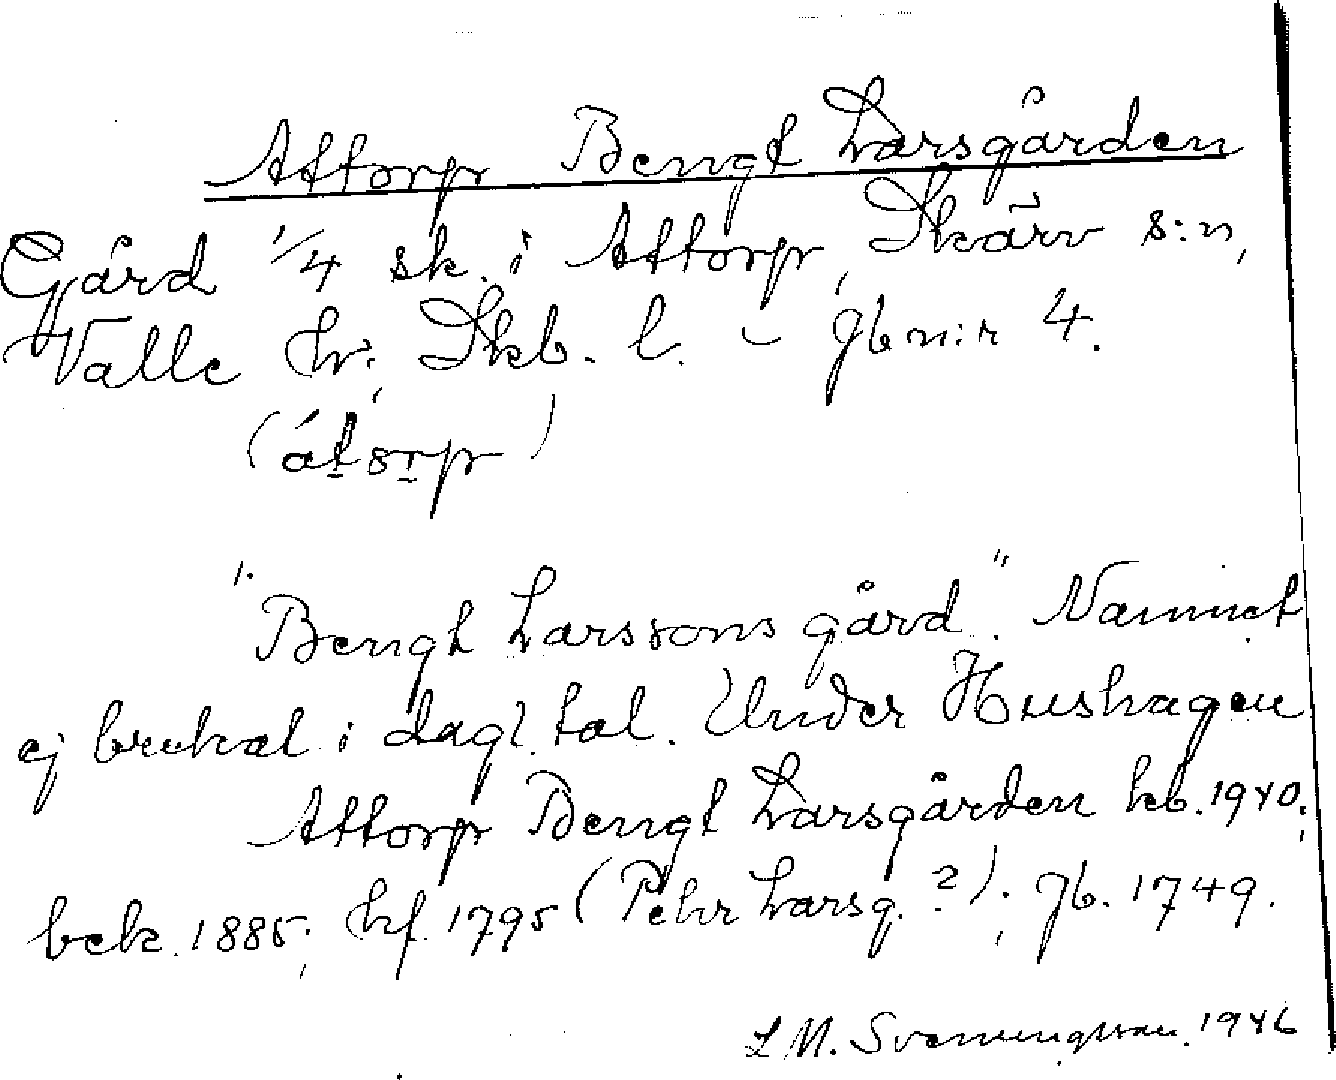 Attorp Bengt Larsgården
Gård 1/4 sk. i Attorp, Skärv s:n,
Valle hr; Skb. l. – jb n:r 4.
(átorp)
"Bengt Larssons gård". Namnet
ej brukat i dagl. tal. Under Hushagen
Attorp Bengt Larsgården kb. 1940;
bek. 1885; hf. 1795 (Pehr Larsg. ?); jb. 1749.
L M. Svenungsson. 1946